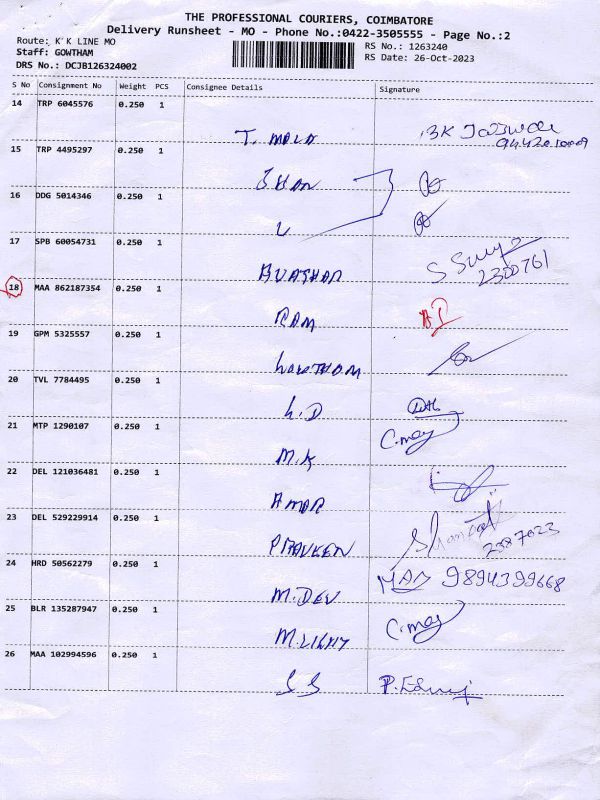 THE PROFESSIONAL COURIERS, COIMBATORE
Delivery Runsheet - MO - Phone No.:0422-3505555 - Page No.:2
Route: K K LINE MO
Staff: GOWTHAM
DRS No.: DCJB126324002
RS No.: 1263240
RS Date: 26-Oct-2023
S No Consignment No Weight PCS Consignee Details Signature
14 TRP 6045576 0.250 1
T. MALA
15 TRP 4495297 0.250 1
16 DDG 5014346 0.250 1
17 SPB 60054731 0.250 1
S Surya
2300761
18 MAA 862187354 0.250 1
RAM
19 GPM 5325557 0.250 1
20 TVL 7784495 0.250 1
21 MTP 1290107 0.250 1
M.K
22 DEL 121036481 0.250 1
AMAR
23 DEL 529229914 0.250 1
PRAVEEN
24 HRD 50562279 0.250 1
M.DEV 9894399668
25 BLR 135287947 0.250 1
26 MAA 102994596 0.250 1
S S